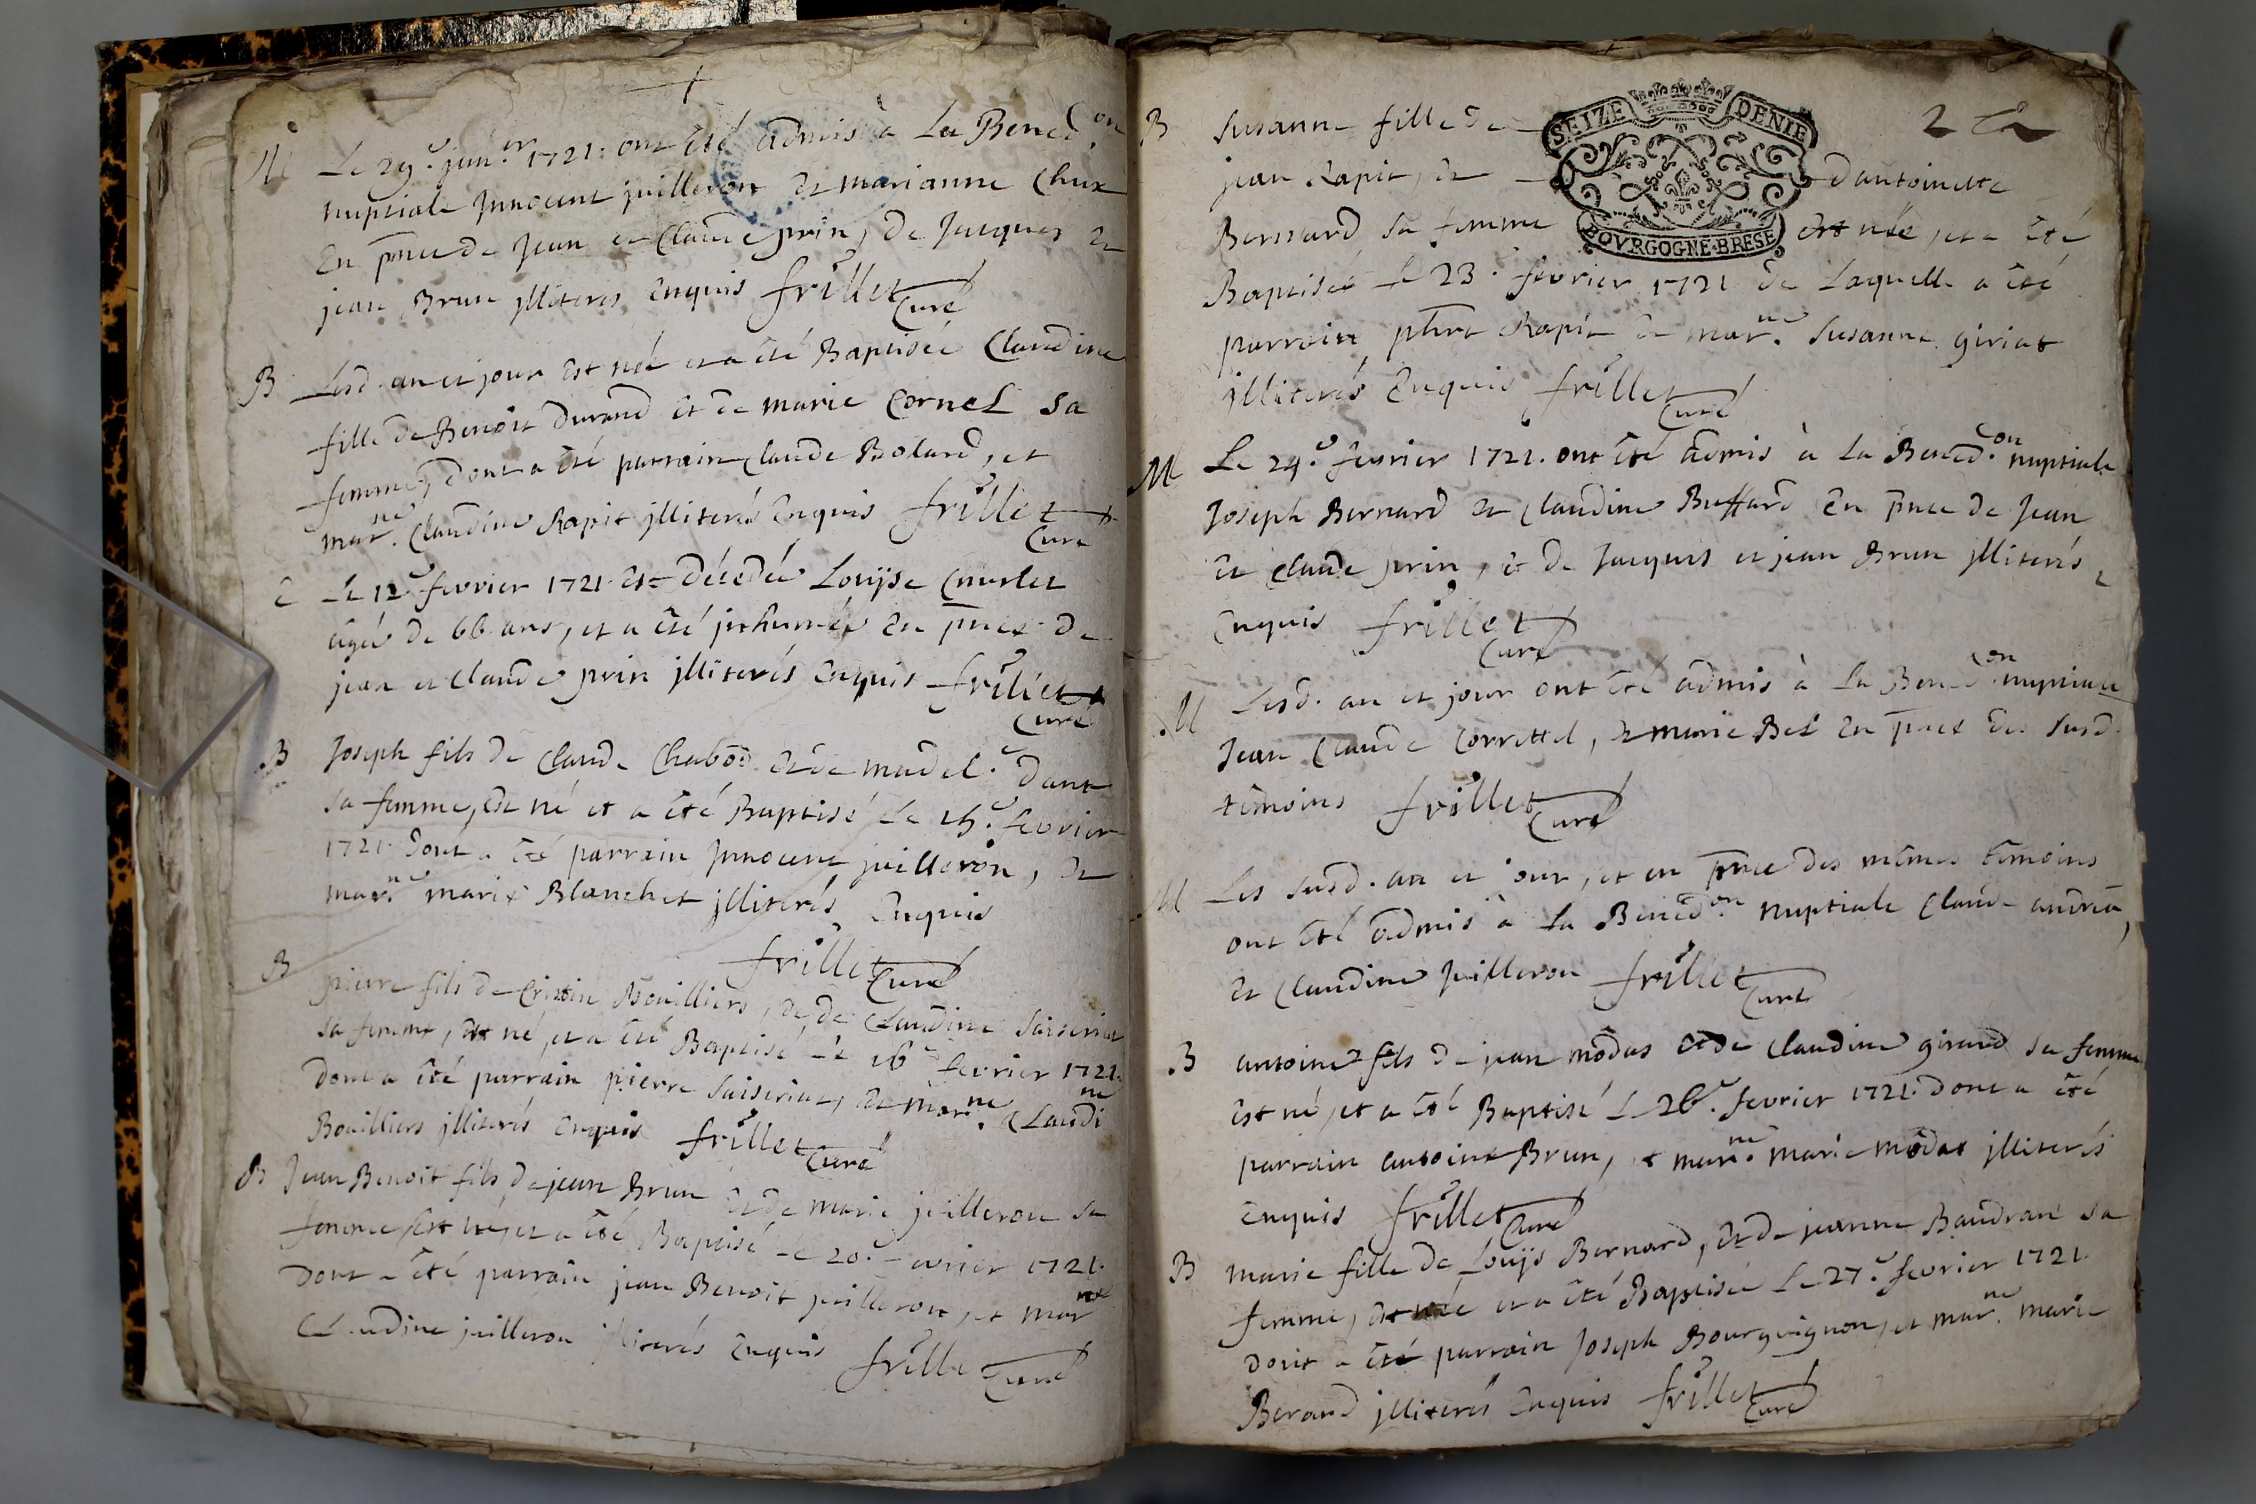 M Le 29.e janer 1721. ont été admis à La Bened.on
nuptiale Jnnocent juilleron et marianne Chux
En pñce de Jean et Claude prin, de Jacques et
jean Brun jlliterés Enquis frillet
Curé
B Lesd. an et jour Est née et a été Baptisée Claudine
fille de Benoit Durand et de marie Cornel Sa
femme, dont a été parrain Claude Bolard, et
mar.ne Claudine Rapit jlliterés Enquis frillet
Curé
Le 12e fevrier 1721 est décédée Louyse
agée de 66 ans, et a été jnhumée En pñce de
jean et Claude prin jlliterés Enquis frillet
Curé
B Joseph fils de Claude Chabod et de madel.e Dant
sa femme, Est né et a été Baptisé Le 15.e fevrier
1721. dont a été parrain Jnnocent juilleron, et
mar.ne marie Blanchet jlliterés Enquis
frillet
Curé
B pierre fils de Cristin Bouilliers, et de Claudine Saiseriat
sa femme, est né, et a été Baptisé Le 16e fevrier 1721.
Dont a été parrain pierre Saiseriat, et mar.ne Claudine
Bouilliers jlliterés Enquis frillet
Curé
B Jean Benoit fils de jean Brun et de marie juilleron sa
femme, Est né, et a été Baptisé Le 20.e fevrier 1721.
Dont a été parrain jean Benoit juilleron, et marne
Claudine juilleron jlliterés Enquis frillet
Curé
SEIZE DENIE
BOVRGOGNE·BRESE
2
B Susanne fille de
jean Rapit, et dantoinette
Bernard sa femme est née, et a été
Baptisée Le 23.e fevrier 1721 de Laquelle a été
parrain Rapit et mar.ne Susanne giriat
jlliterés Enquis frillet
Curé
M Le 24.e fevrier 1721. ont été admis à La Bened.on nuptiale
Joseph Bernard et Claudine Buffard En pñce de Jean
et Claude prin, et de Jacques et jean Brun jlliterés
Enquis frillet
Curé
M Lesd. an et jour ont été admis à La Bened.on nuptiale
Jean Claude Correttel, et marie Bel En pñce des susd.
témoins frillet
Curé
M Les susd. an et jour, et en pñce des mêmes témoins
ont été admis à La Bened.on nuptiale Claude andréa,
et Claudine Juilleron frillet
Curé
B antoine fils de jean môdas et de Claudine girard sa femme
est né, et a été Baptisé Le 26.e fevrier 1721. dont a été
parrain antoine Brun, et mar.ne marie môdas jlliterés
Enquis frillet
Curé
B marie fille de Louys Bernard, et de jeanne Baudran sa
femme, est née et a été Baptisée Le 27.e fevrier 1721
dont a été parrain Joseph Bourguignon, et mar.ne marie
Berard jlliterés Enquis frillet
Curé